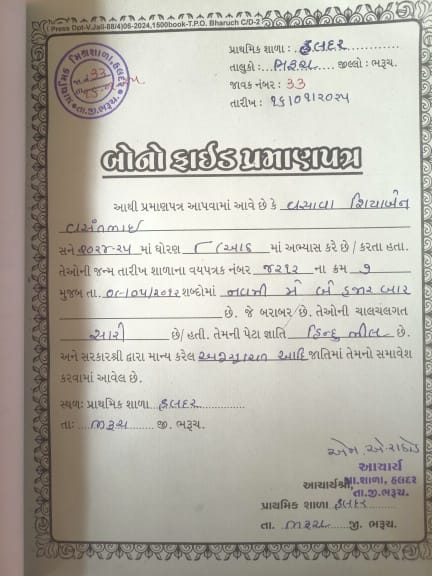 Press Dpt-V.Jali-88(4)06-2024,1500book-T.P.O. Bharuch C/D-2
પ્રાથમિક શાળા : હલદર
તાલુકો : ભરૂચ જીલ્લો : ભરૂચ.
જાવક નંબર : 33
તારીખ : ૧૬/૦૧/૨૦૨૫
પ્રાથમિક મિશ્રશાળા, હલદર
તા.જી.ભરૂચ.
33
બોનોફાઈડ પ્રમાણપત્ર
આથી પ્રમાણપત્ર આપવામાં આવે છે કે વસાવા શિવાબેન
વસંતભાઈ
સને ૨૦૨૪-૨૫ માં ધોરણ ૮ (આઠ) માં અભ્યાસ કરે છે / કરતા હતા.
તેઓની જન્મ તારીખ શાળાના વયપત્રક નંબર ૪૨૧૨ ના ક્રમ ૭
મુજબ તા. ૦૯/૦૫/૨૦૧૨ શબ્દોમાં નવમી મે બે હજાર બાર
છે. જે બરાબર છે. તેઓની ચાલચલગત
સારી છે/હતી. તેમની પેટા જ્ઞાતિ હિન્દુ ભીલ છે.
અને સરકારશ્રી દ્વારા માન્ય કરેલ અનુસૂચિત આદિ જાતિમાં તેમનો સમાવેશ
કરવામાં આવેલ છે.
સ્થળ: પ્રાથમિક શાળા હલદર
તા: ભરૂચ જી. ભરૂચ.
આચાર્ય
આચાર્યશ્રી,
પ્રા.શાળા, હલદર
તા.જી.ભરૂચ.
પ્રાથમિક શાળા હલદર
તા. ભરૂચ જી. ભરૂચ.